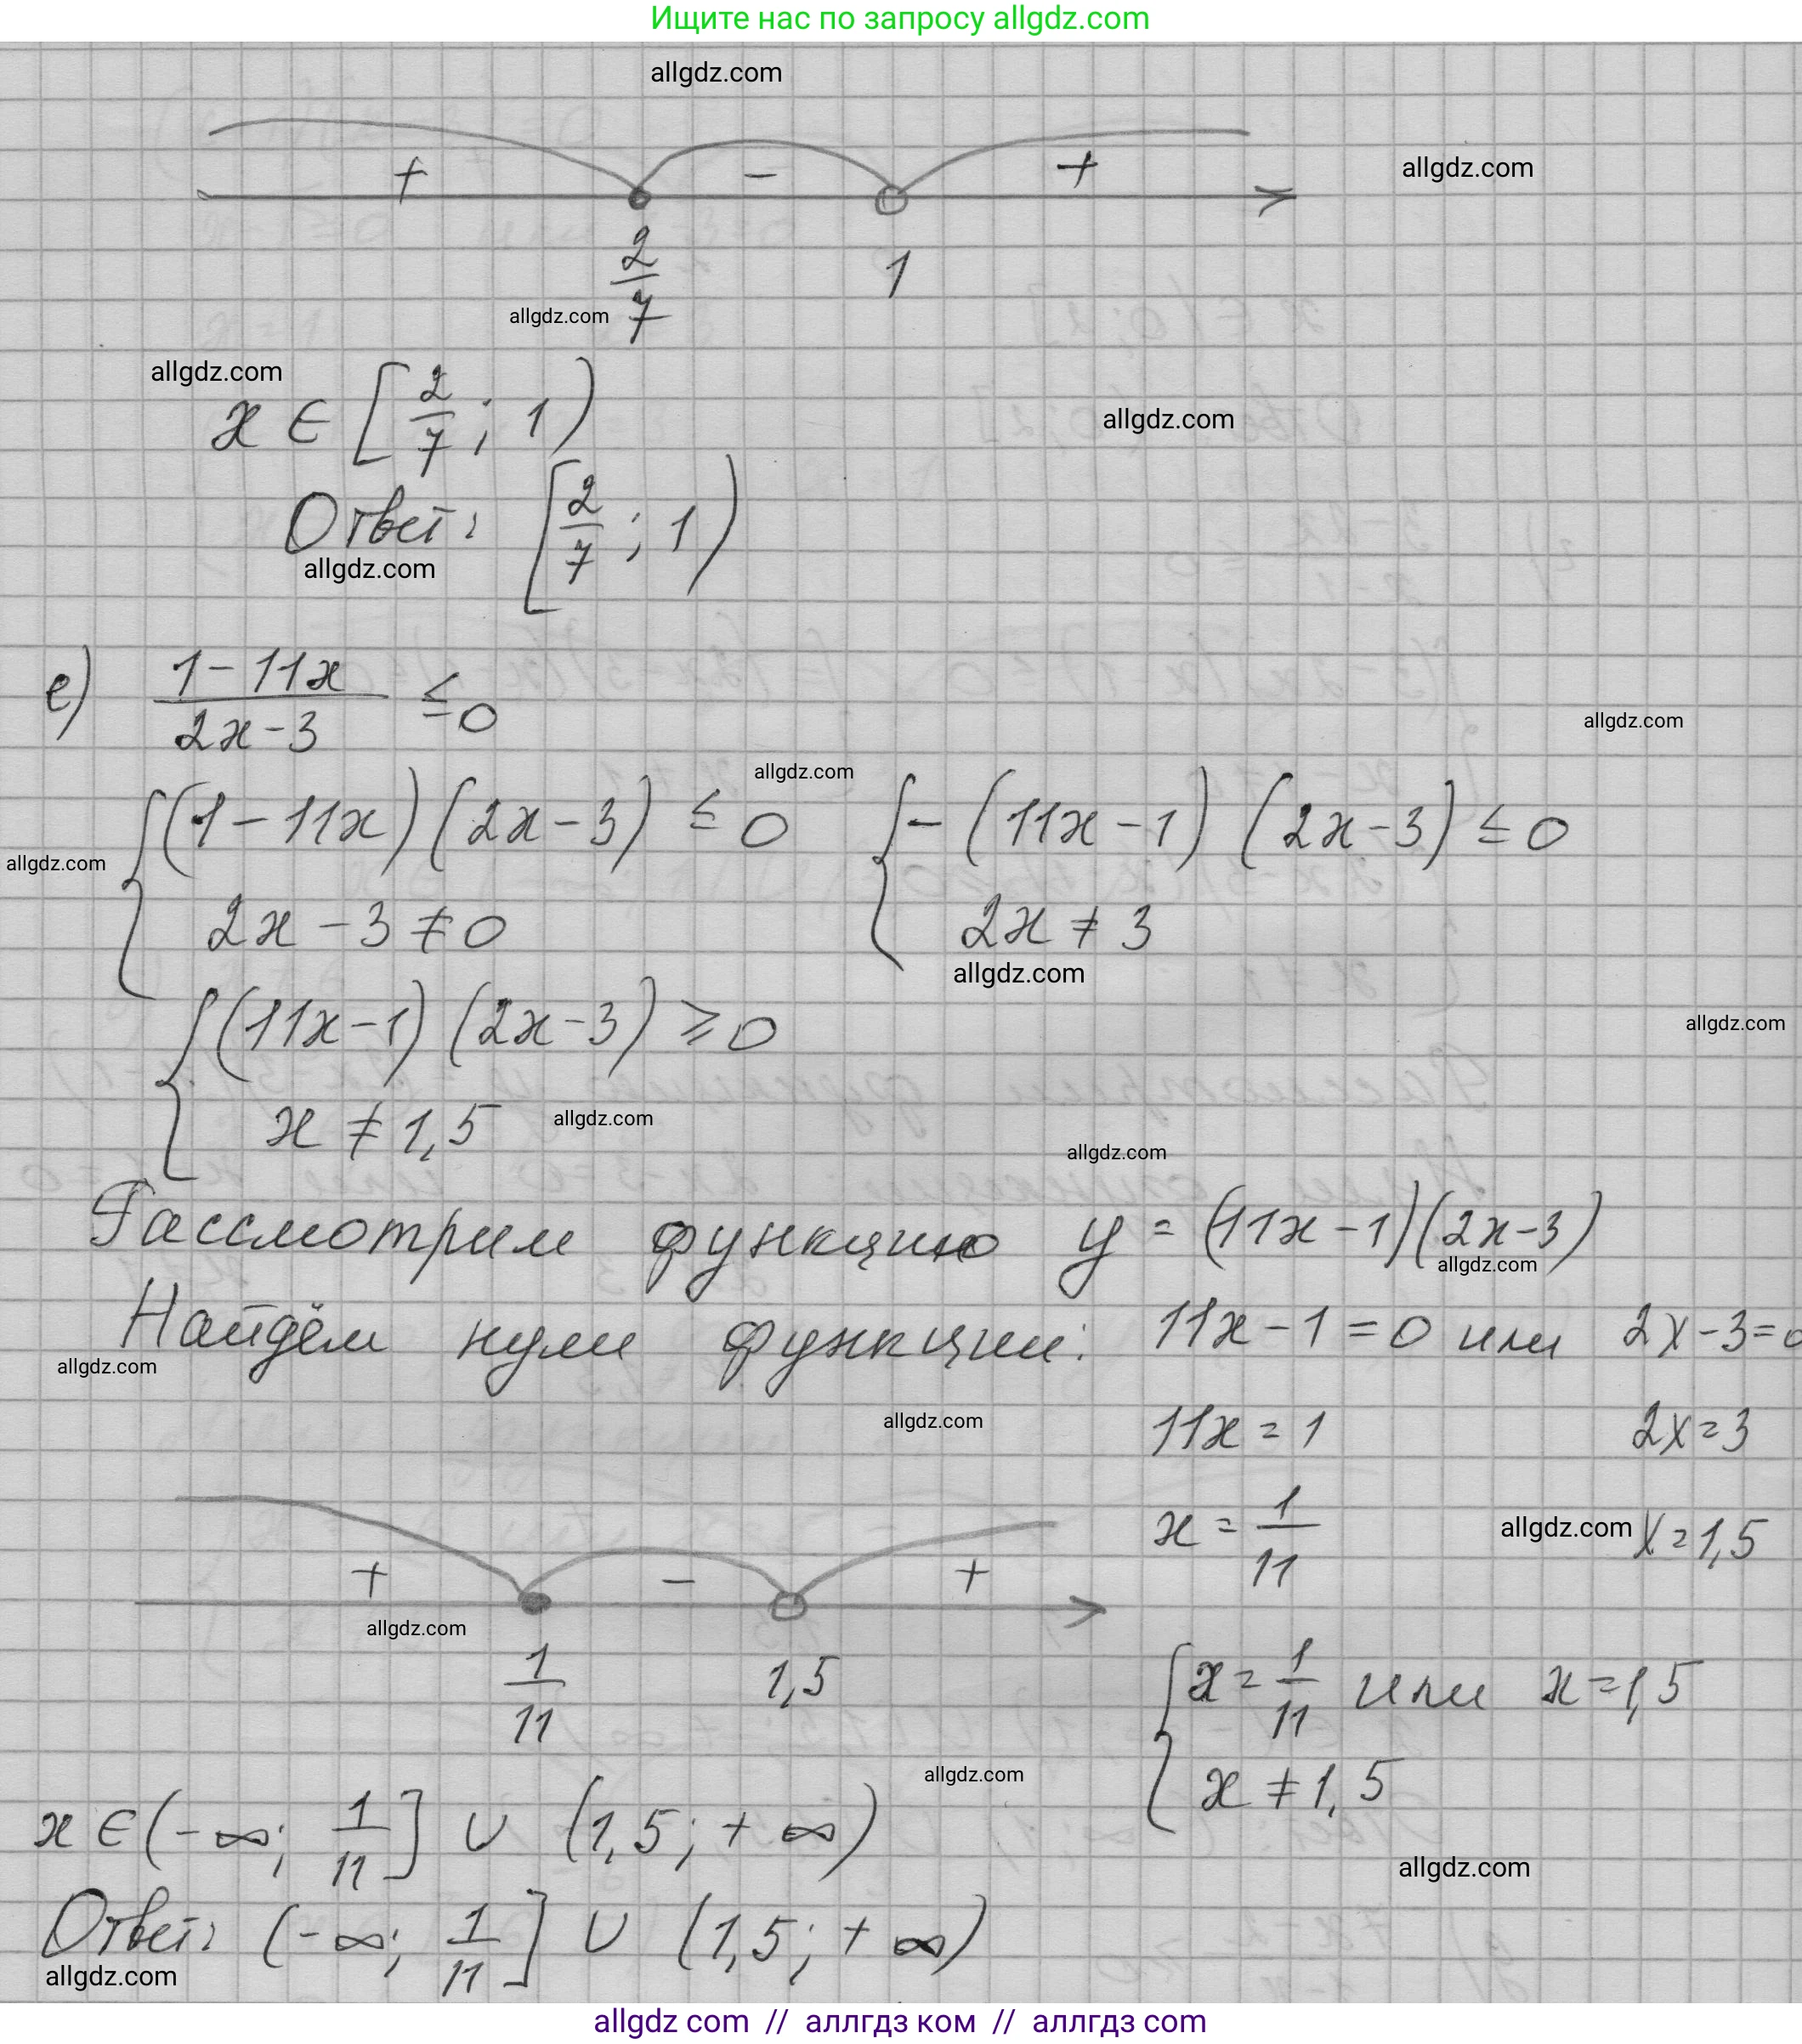 Ищите нас по запросу allgdz.com
allgdz.com
+ − +
allgdz.com
2/7 1
allgdz.com
allgdz.com
x ∈ [2/7; 1)
allgdz.com
Ответ: [2/7; 1)
allgdz.com
е) (1 − 11x)/(2x − 3) ≤ 0
allgdz.com
allgdz.com
{(1 − 11x)(2x − 3) ≤ 0 {−(11x − 1)(2x − 3) ≤ 0
allgdz.com
2x − 3 ≠ 0 2x ≠ 3
allgdz.com
{(11x − 1)(2x − 3) ≥ 0
allgdz.com
x ≠ 1,5
allgdz.com
allgdz.com
Рассмотрим функцию y = (11x − 1)(2x − 3)
allgdz.com
Найдём нули функции: 11x − 1 = 0 или 2x − 3 = 0
allgdz.com
allgdz.com
11x = 1 2x = 3
x = 1/11 allgdz.com x = 1,5
+ − +
allgdz.com
1/11 1,5
{x = 1/11 или x = 1,5
x ≠ 1,5
allgdz.com
x ∈ (−∞; 1/11] ∪ (1,5; +∞)
allgdz.com
Ответ: (−∞; 1/11] ∪ (1,5; +∞)
allgdz.com
allgdz com // аллгдз ком // аллгдз com